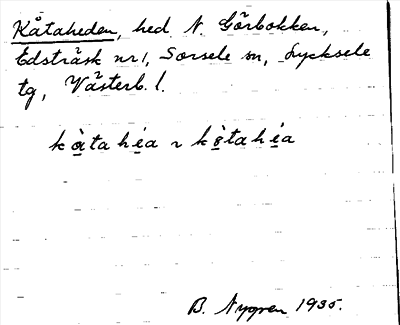 Kåtaheden, hed N. Görbokken,
Edsträsk nr 1, Sorsele sn, Lycksele
tg, Västerb. l.
kå̀ta héa ~ kò̱ta hé̱a
B. Nygren 1935.